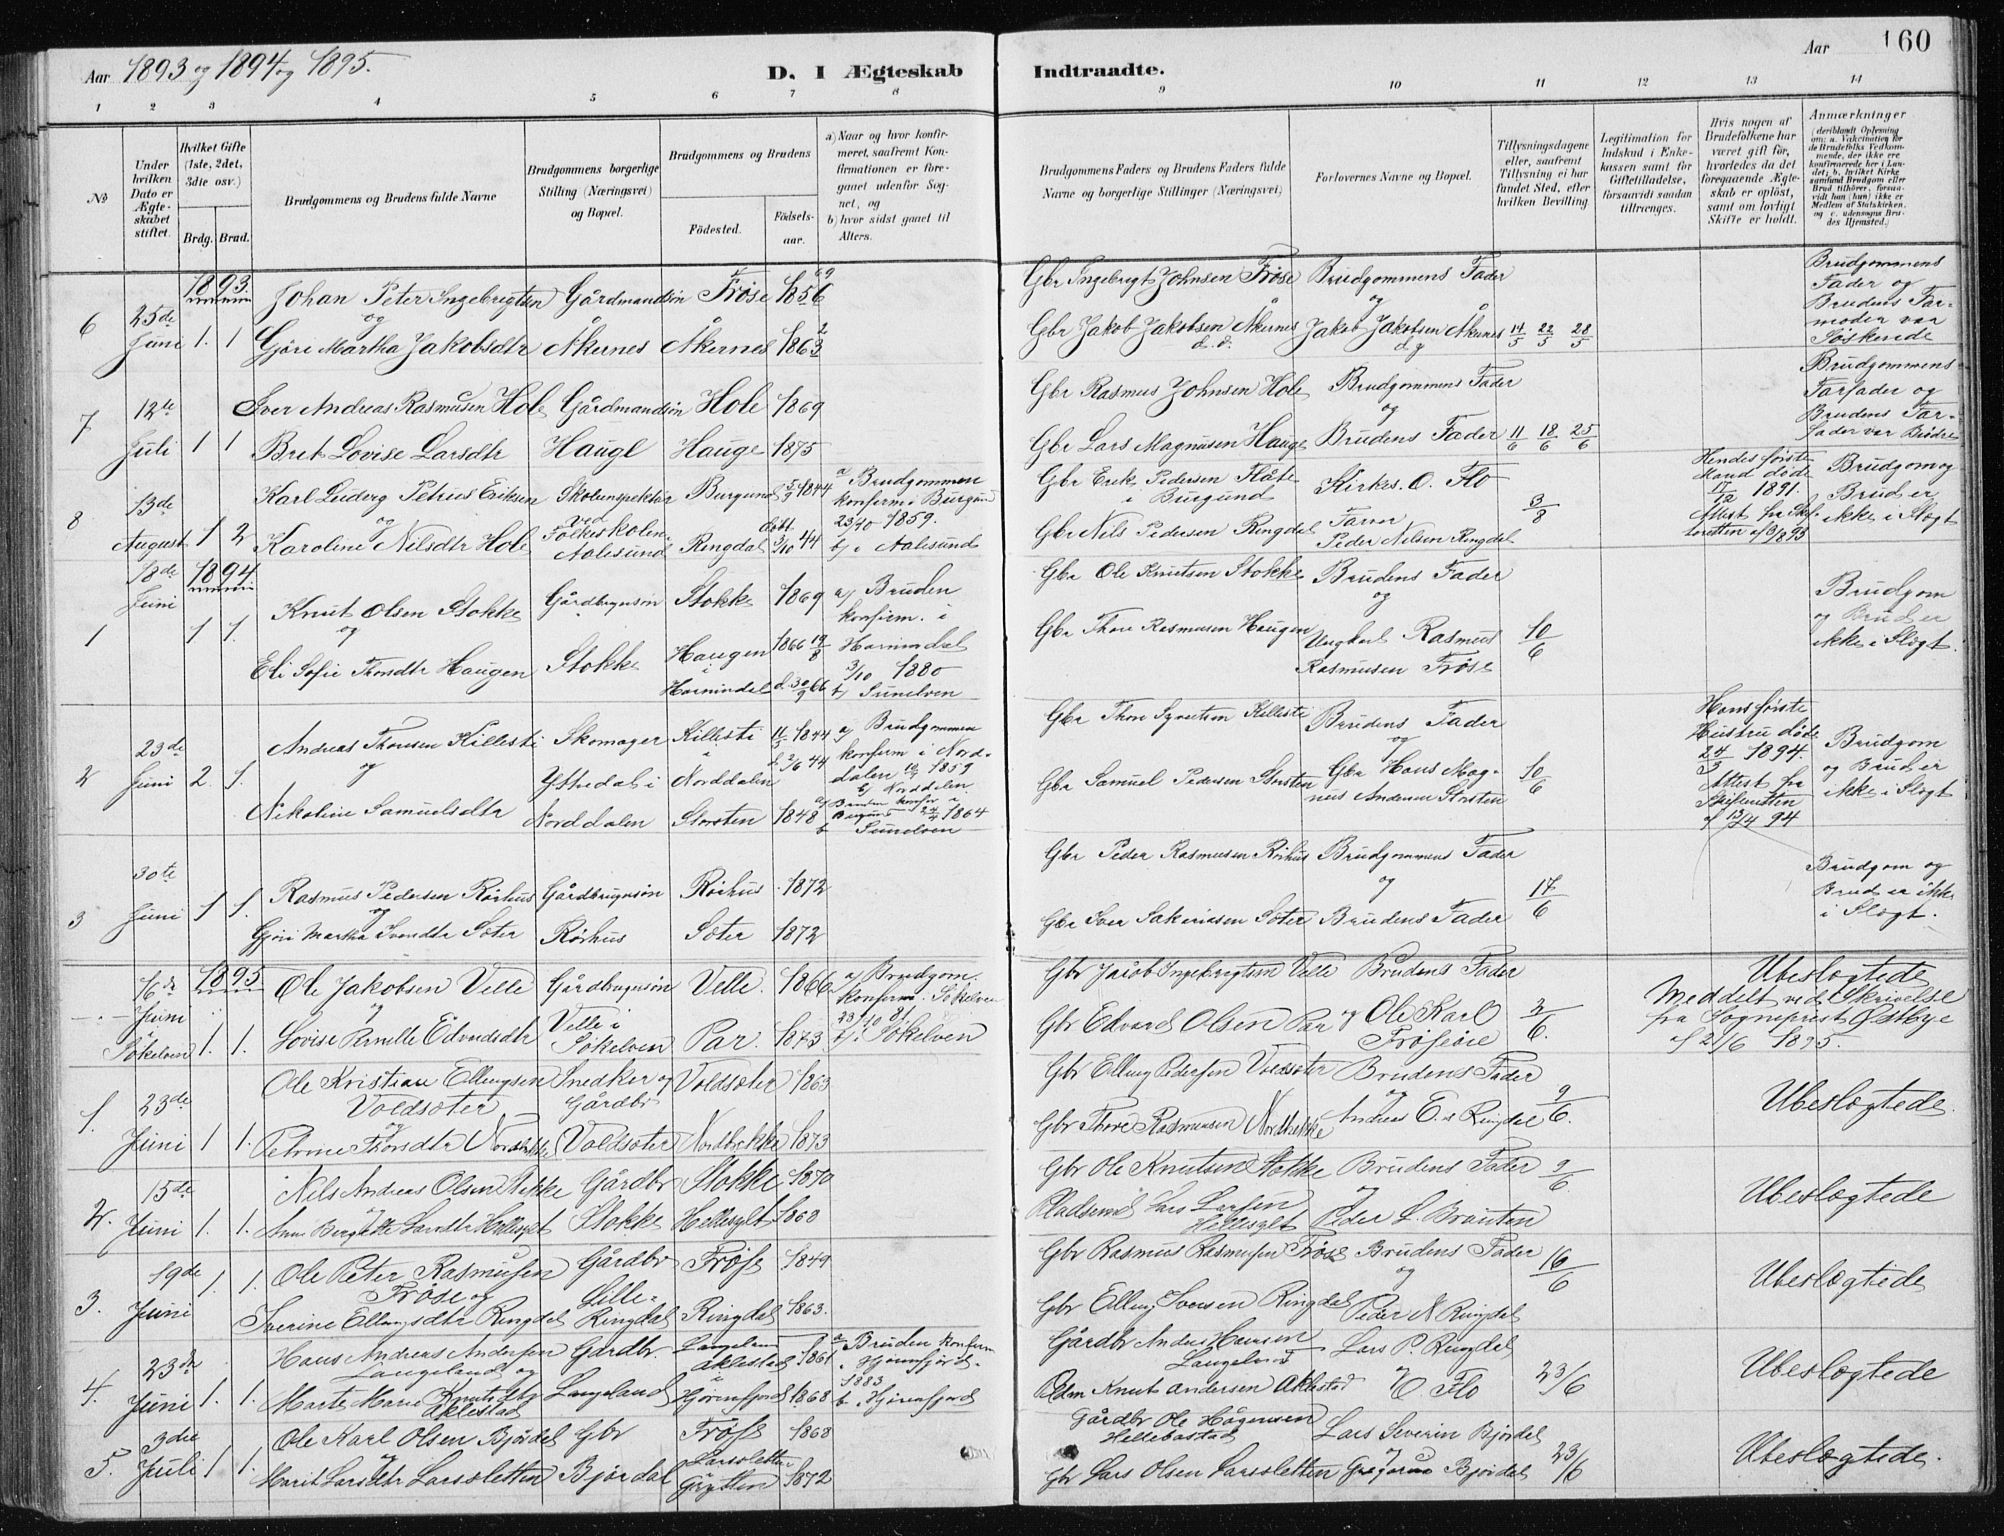 Aar 1893 og 1894 og 1895.
D. I Ægteskab Indtraadte.
Aar 160
1 2 3 4 5 6 7 8 9 10 11 12 13 14
No
Under hvilken Dato er Ægteskabet stiftet.
Hvilket Gifte (1ste, 2det, 3die osv.)
Brdg. Brud.
Brudgommens og Brudens fulde Navne
Brudgommens borgerlige Stilling (Næringsvei) og Bopæl.
Brudgommens og Brudens
Fødested.
Fødselsaar.
a) Naar og hvor konfirmeret, saafremt Konfirmationen er foregaaet udenfor Sognet, og
b) hvor sidst gaaet til Alters.
Brudgommens Faders og Brudens Faders fulde Navne og borgerlige Stillinger (Næringsvei)
Forlovernes Navne og Bopæl.
Tillysningsdagene eller, saafremt Tillysning ei har fundet Sted, efter hvilken Bevilling
Legitimation for Indskud i Enkekassen samt for Giftetilladelse, forsaavidt saadan tiltrænges.
Hvis nogen af Brudefolkene har været gift før, hvorledes da det foregaaende Ægteskab er opløst, samt om lovligt Skifte er holdt.
Anmærkninger
1893.
6 25de Juni 1. 1
Johan Peter Ingebrigtsen Gårdmandsøn Frøse 1856
og
Gjøre Martha Jakobsdtr Åkernes Åkernes 1863
Gbr Ingebrigt Johnsen Frøse Brudgommens Fader
og
Gbr Jakob Jakobsen Åkernes Jakob Jakobsen Åkernes 14/5 22/5 28/5
Brudgommens Fader og Brudens Farmoder var Søskende
7 12te Juli 1 1
Iver Andreas Rasmusen Hole Gårdmandsøn Hole 1869
Bret Lovise Larsdtr Haugl Hauge 1875
Gbr Rasmus Johnsen Hole Brudgommens Fader
og
Gbr Lars Magnusen Hauge Brudens Fader 11/6 18/6 25/6
Brudgommens Farfader og Brudens Farfader var Brødre
8 13de August 1 2
Karl Luderg Petrus Eriksen Skoleinspektør Burgund 5/9 1844
og ved Folkeskolen
Karoline Nilsdtr Hole Aalesund Ringdal døbt 3/10 44
a Brudgommen konferm i Burgund 23/10 1859.
b) i Aalesund
Gbr Erik Pedersen Flåte i Burgund Kirkes. O. Flo
Gbr Nils Pedersen Ringdal Farver Peder Nilsen Ringdal 3/8
Hendes første Mand døde 17/12 1891.
Brudgom og Brud er ikke i Slægt
1894
1 18de Juni 1 1.
Knut Olsen Stokke Gårdbrugersøn Stokke 1869
og
Eli Sofie Thorsdtr Haugen Stokke Haugen i Hornindal 1866 19/8 d. 30/9 66
a) Bruden konfirm. i Hornindal 3/10 1880
b) Sunelven
Gbr Ole Knutsen Stokke Brudens Fader
og
Gbr Thore Rasmusen Haugen Ungkarl Rasmus Rasmusen Frøse 10/6
Brudgom og Brud er ikke i Slægt.
2 23de Juni 2. 1.
Andreas Thoresen Killesti Skomager Killesti i Norddalen 11/5 1844 d. 2/6 44
og Ytredal i
Nikoline Samuelsdtr Norddalen Storsten 1848
a) Brudgommen konferm i Norddalen 1859
b) Norddalen
a) Bruden konfir. i Burgund 1864
b Sunelven
Gbr Thore Syvertsen Killesti Brudens Fader
og
Gbr Samuel Pedersen Storsten Gbr Hans Magnus Andersen Storsten 10/6
Hans første Hustru døde 24/3 1894.
Attest fra Skifteretten af 13/4 94
Brudgom og Brud er ikke i Slægt
3 30te Juni 1 1.
Rasmus Pedersen Rørhus Gårdbrugersøn Rørhus 1872
og
Gjøri Martha Iversdtr Søter Rørhus Søter 1872
Gbr Peder Rasmusen Rørhus Brudgommens Fader
og
Gbr Iver Sakariasen Søter Brudens Fader 17/6
Brudgom og Brud er ikke i Slægt.
1895
16de Juni i Søkelven 1. 1.
Ole Jakobsen Velle Gårdbrugersøn Velle. 1866
og Velle i
Lovise Pernille Edvardsdtr Søkelven Par. 1873
a) Brudgom. konferm. Søkelven 23/10 81.
b). Søkelven
Gbr Jacob Ingebrigtsen Velle Brudens Fader
Gbr Edvard Olsen Par og Ole Karl Frøseøie 2/6.
Ubeslægtede
Meddelt ved Skrivelse fra Sogneprest Østbye af 2/6 1895.
1. 23de Juni 1 1.
Ole Kristian Ellingsen Voldsøter Snedker og Gårdbr Voldsøter 1863
og
Petrine Thorsdtr Nordbekke Voldsøter Nordbekke 1873
Gbr Elling Pedersen Voldsøter Brudens Fader
og
Gbr Thore Rasmusen Nordbekke Andreas E. Ringdal 9/6.
Ubeslægtede.
2. 15de Juni 1. 1.
Nils Andreas Olsen Stokke Gårdbr Stokke 1870
og
Anne Bergitte Larsdtr Hellesylt Stokke Hellesylt 1868
Gbr Ole Knutsen Stokke Brudens Fader 9/6
og
Pladsemd Lars Larsen Hellesylt Peder L. Brauten
Ubeslægtede
3. 19de Juni 1. 1.
Ole Peter Rasmusen Frøse og Gårdbr Frøse 1849
Severine Ellingsdtr Ringdal Lille-Ringdal Ringdal 1863.
Gbr Rasmus Rasmusen Frøse Brudens Fader 16/6
og
Gbr Elling Iversen Ringdal Peder N Ringdal
Ubeslægtede
4. 23de Juni 1. 1.
Hans Andreas Andersen Langeland og Gårdbr. Langeland 1861
Marte Marie Knutsdtr Åklestad Langeland Åklestad i Hjørenfjord 1868
a Bruden konferm i Hjørenfjord. 1883
b. Hjørenfjord
Gårdbr Anders Hansen Langeland Lars P. Ringdal
Gbr Knut Andersen Aklestad og O Flo 23/6
Ubeslægtede
5. 3die Juli 1 1.
Ole Karl Olsen Bjørdal Gbr Frøse 1868
og
Marit Larsdtr Larssletten Bjørdal Larssletten Grytten 1872
Gårdbr Ole Hågensen Hellebostad Lars Severin Bjørdal
og
Gbr Lars Olsen Larssletten Gregorius Bjørdal 23/6
Ubeslægtede.